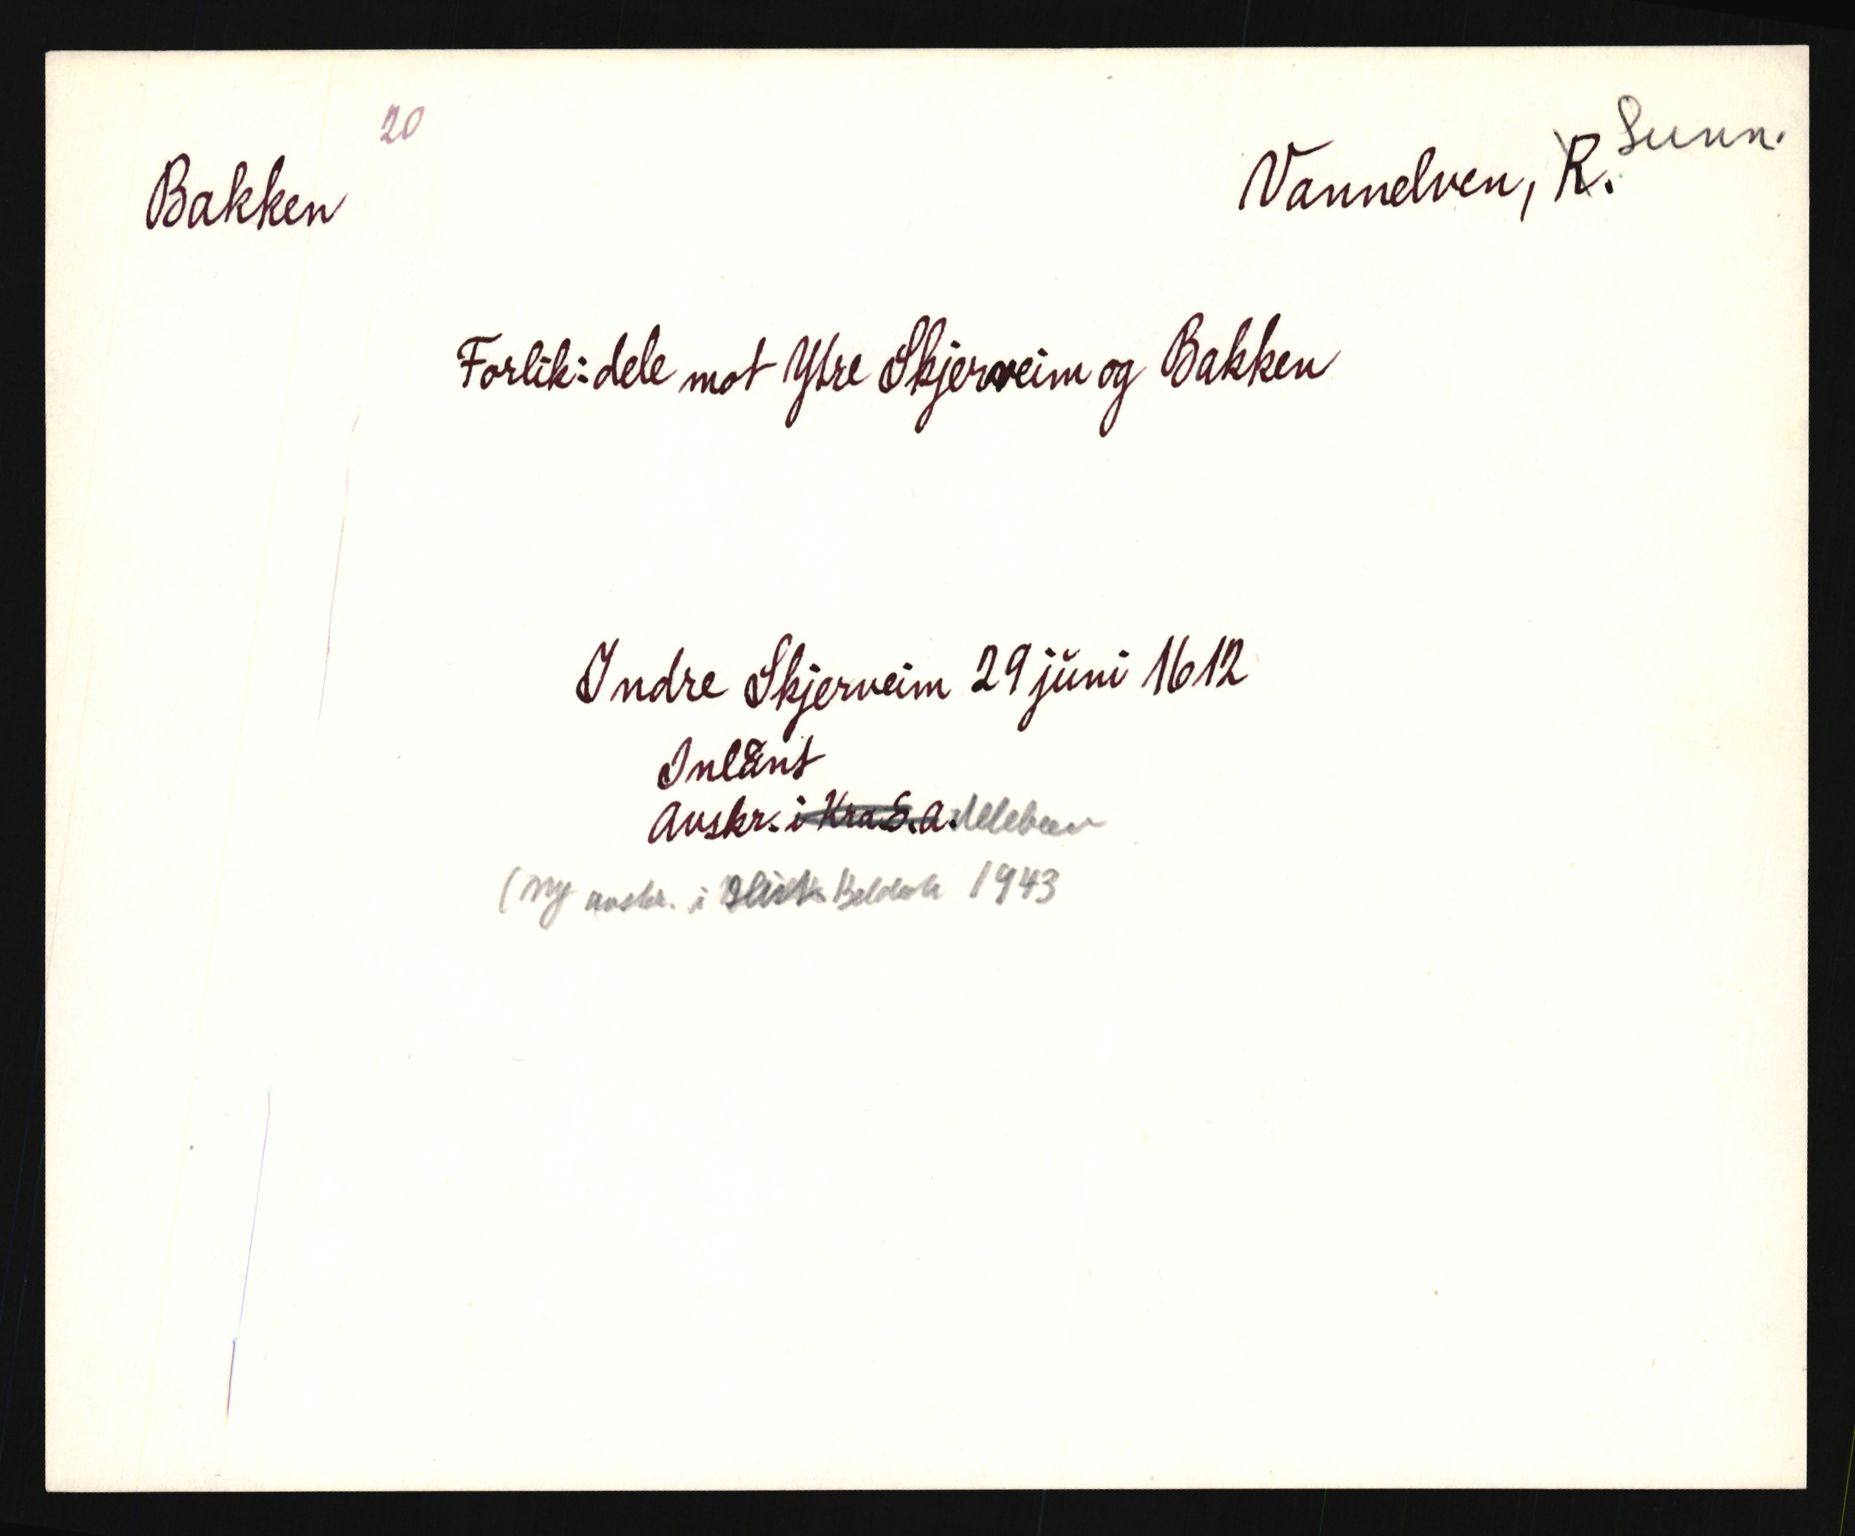 20
Bakken
Vannelven, R. Sunn.
Forlik: dele mot Ytre Skjerveim og Bakken
Indre Skjerveim 29 juni 1612
Inlånt
Avskr. i Kra S. A.
(Ny avskr. i 1943